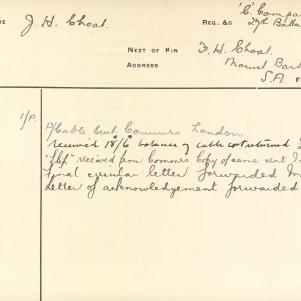 ME J. H. Choat. REG. &C 'C' Compa
27th Batta
NEXT OF KIN F. H. Choat.
ADDRESS Mount Bark
S.A
I/P. P/Cable Sent Commrs London.
received 18/6 balance of cable cost returned
received from Commrs Copy of same sent
Final circular letter forwarded
Letter of acknowledgement forwarded